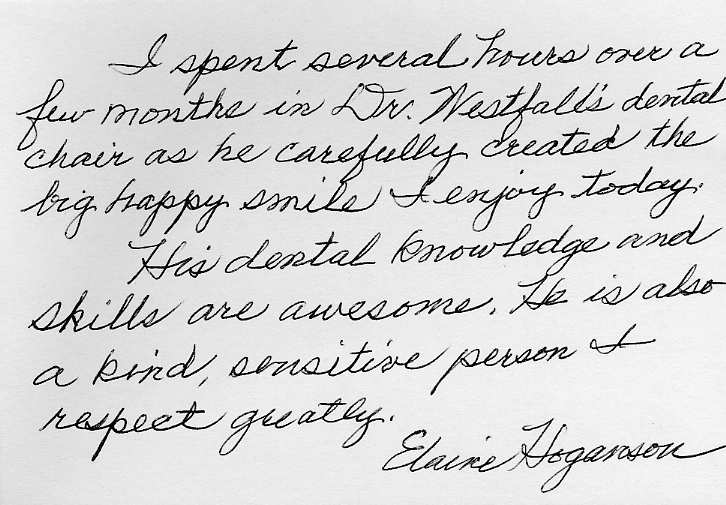 I spent several hours over a
few months in Dr. Westfall's dental
chair as he carefully created the
big happy smile I enjoy today.
His dental knowledge and
skills are awesome. He is also
a kind, sensitive person I
respect greatly.
Elaine Hoganson